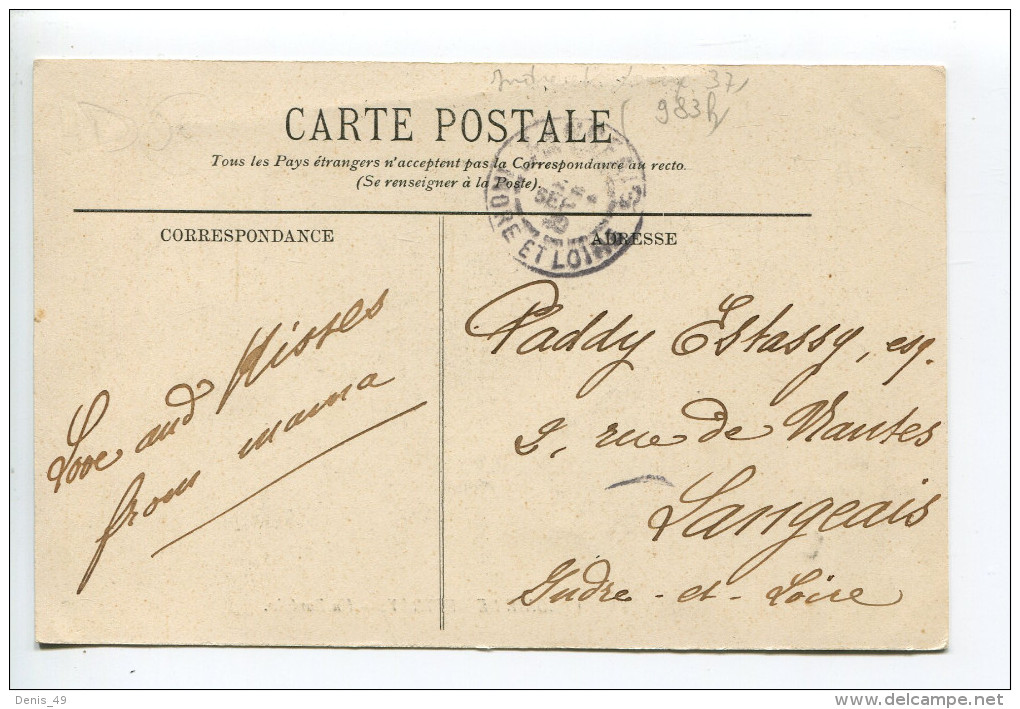 37
983
CARTE POSTALE
Tous les Pays étrangers n'acceptent pas la Correspondance au recto.
(Se renseigner à la Poste).
SEP
INDRE ET LOIRE
CORRESPONDANCE
ADRESSE
Love and Kisses
from mama
Paddy Estassy, esq.
2, rue de Nantes
Langeais
Indre-et-Loire
Denis_49
www.delcampe.net